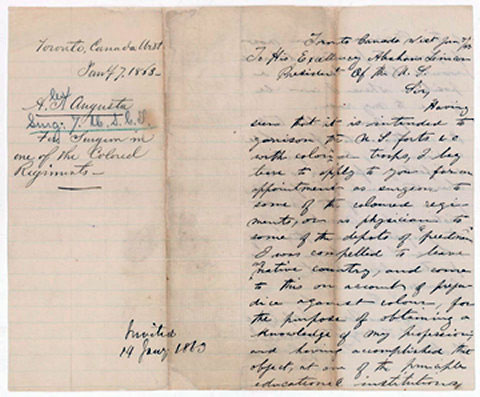 Toronto, Canada West
Jany 7, 1863-
A. Augusta
Surg: 7. U.S.C.T.
For Surgeon in
one of the Colored
Regiments-
Invited
14 Jany 1863
Toronto Canada West Jany 7/63
To His Excellency Abraham Lincoln
President Of the U. S.
Sir,
Having
seen that it is intended to
garrison the U.S. forts &c
with colored troops, I beg
leave to apply to you for an
appointment as surgeon to
some of the coloured regi-
ments, or as physician to
some of the depots of "freedmen"
I was compelled to leave
my native country, and come
to this on account of preju-
dice against colour, for
the purpose of obtaining a
knowledge of my profession;
and having accomplished that
object, at one of the principle
educational institutions